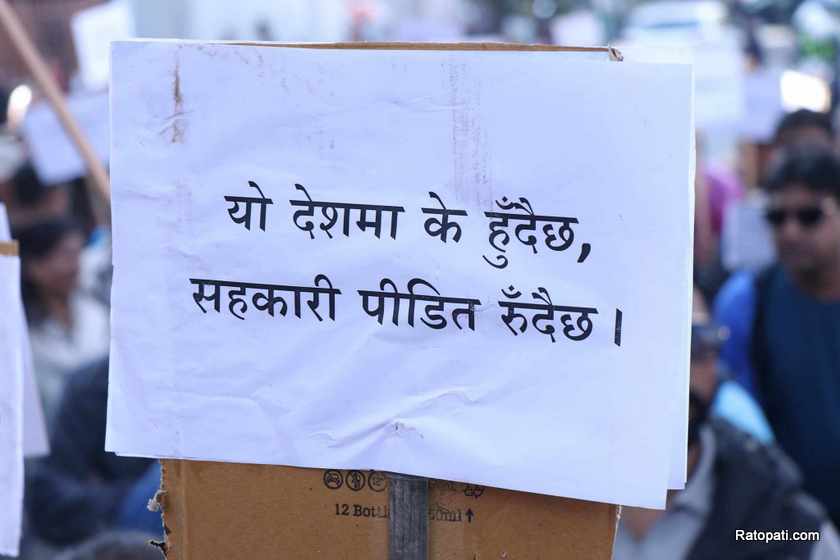 यो देशमा के हुँदैछ,
सहकारी पीडित रुँदैछ ।
12 Bottl
50ml
Ratopati.com